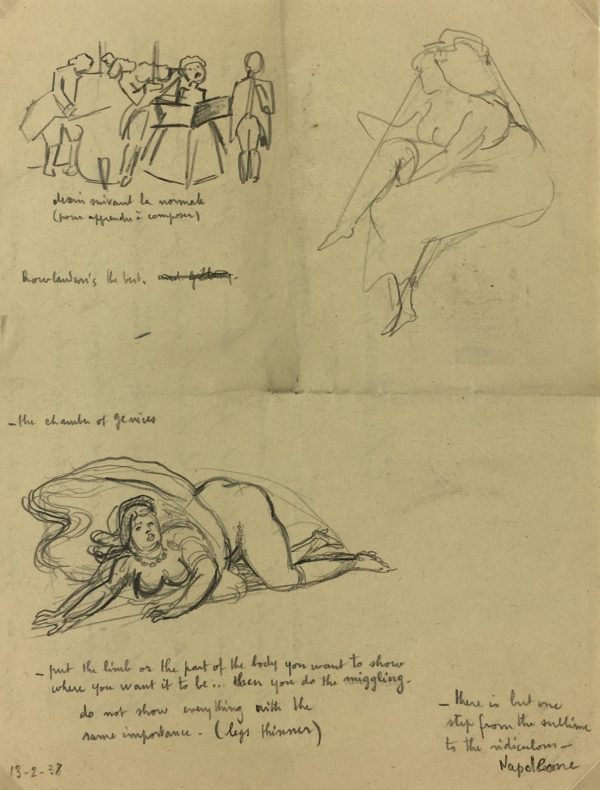 dessin suivant la normale
(pour apprendre à composer)
Rowlandson's the best.
- the chamber of genires
- put the limb or the part of the body you want to show
where you want it to be... then you do the miggling.
do not show everything with the
same importance. (legs thinner)
- there is but one
step from the sublime
to the ridiculous -
Napoleone
13-2-38